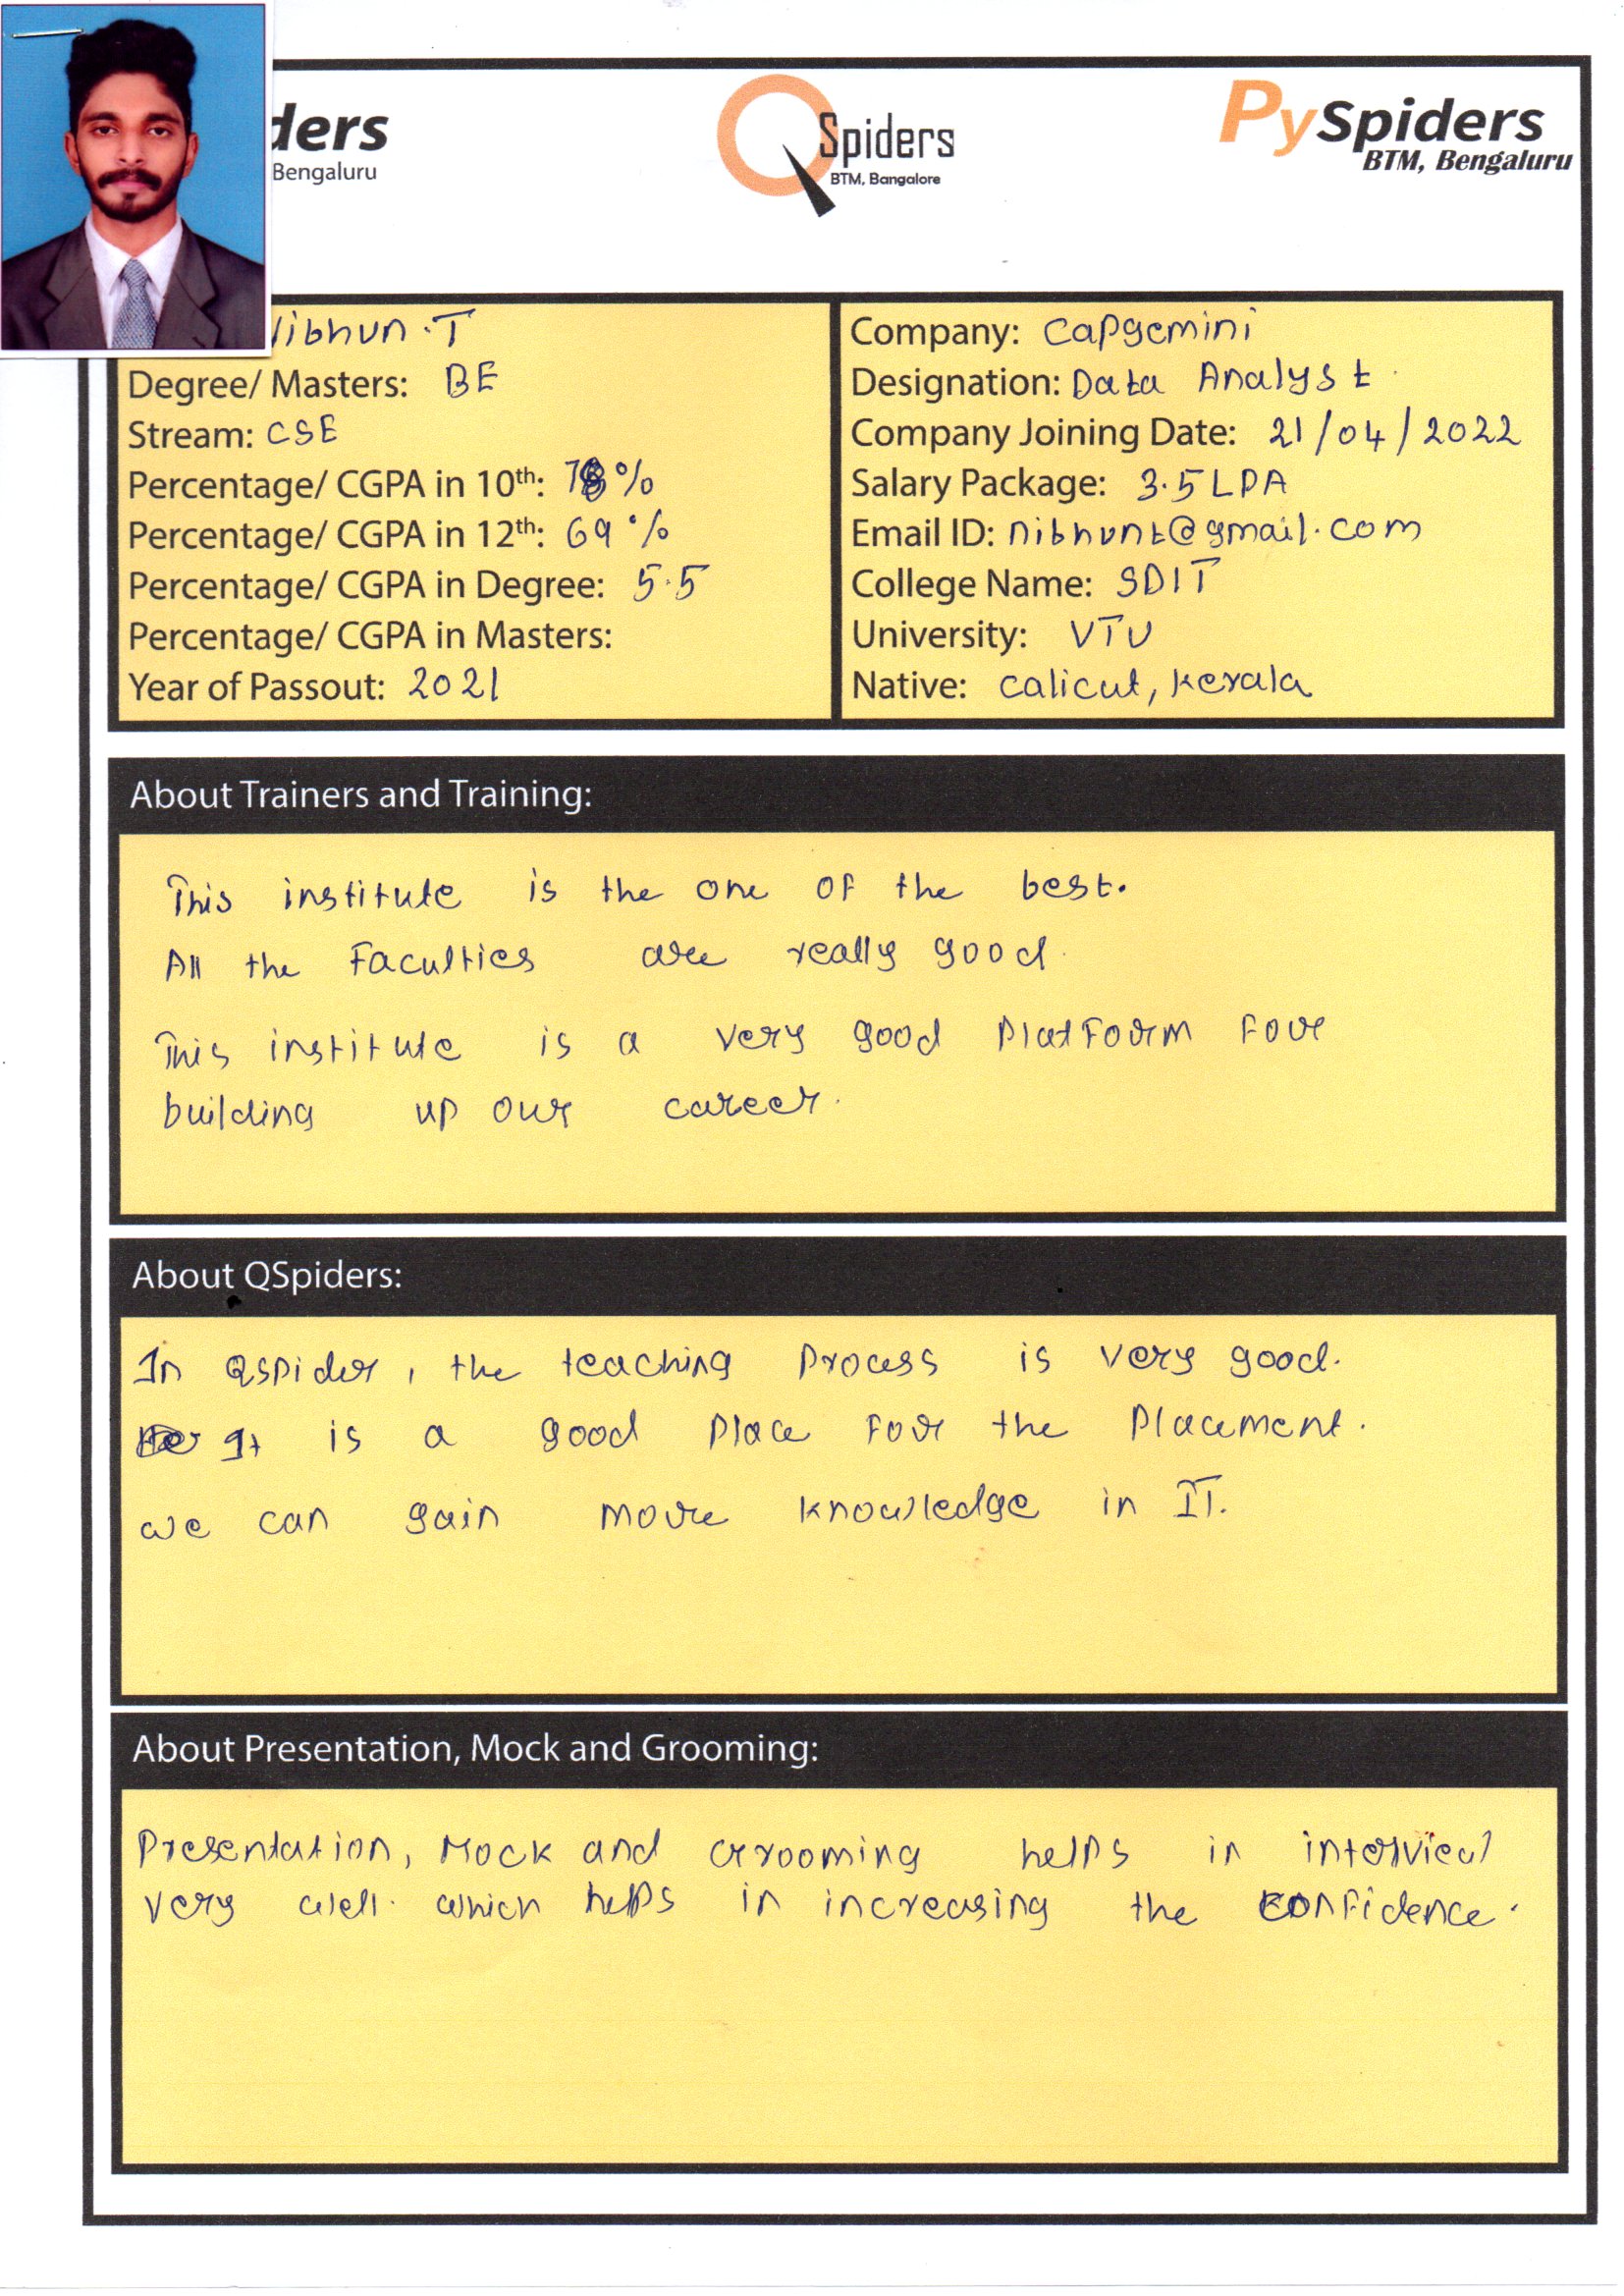 ders
Bengaluru
QSpiders
BTM, Bangalore
PySpiders
BTM, Bengaluru
Nibhun.T
Degree/ Masters: BE
Stream: CSE
Percentage/ CGPA in 10th: %
Percentage/ CGPA in 12th: 69%
Percentage/ CGPA in Degree: 5.5
Percentage/ CGPA in Masters:
Year of Passout: 2021
Company: Capgemini
Designation: Data Analyst
Company Joining Date: 21/04/2022
Salary Package: 3.5 LPA
Email ID: nibhunt@gmail.com
College Name: SDIT
University: VTU
Native: Calicut, Kerala
About Trainers and Training:
This institute is the one of the best.
All the Faculties are really good.
This institute is a very good Platform For
building up our career.
About QSpiders:
In QSpider, the teaching Process is very good.
It is a good Place For the Placement.
we can gain more knowledge in IT.
About Presentation, Mock and Grooming:
Presentation, Mock and Grooming helps in interview
very well. which helps in increasing the confidence.